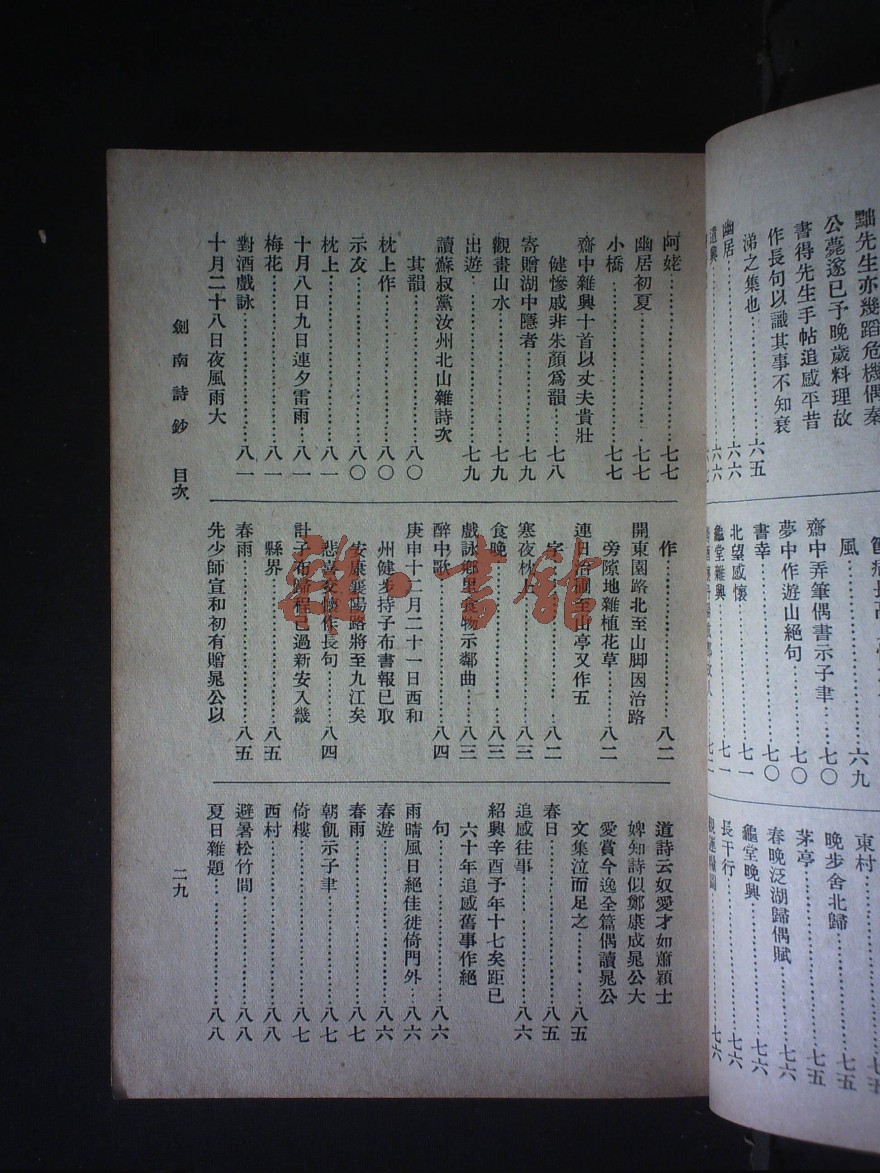 黜先生亦幾蹈危機偶秦
公薨遂已予晚歲料理故
書得先生手帖追感平昔
作長句以識其事不知衰
涕之集也……六五
幽居……六六
遣興……六六
風……六九
齋中弄筆偶書示子聿……七〇
夢中作遊山絕句……七〇
書幸……七〇
北望感懷……七一
龜堂雜興……七一
東村……七五
晚步舍北歸……七五
茅亭……七五
春晚泛湖歸偶賦……七六
龜堂晚興……七六
長干行……七六
阿姥……七七
幽居初夏……七七
小橋……七七
齋中雜興十首以丈夫貴壯
健慘戚非朱顏爲韻……七八
寄贈湖中隱者……七九
觀畫山水……七九
出遊……七九
讀蘇叔黨汝州北山雜詩次
其韻……八〇
枕上作……八〇
示友……八〇
枕上……八一
十月八日九日連夕雷雨……八一
梅花……八一
對酒戲詠……八一
十月二十八日夜風雨大
作……八二
開東園路北至山脚因治路
旁隙地雜植花草……八二
連日治圃至山亭又作五
字……八二
寒夜枕上……八三
食晚……八三
戲詠鄉里食物示鄰曲……八三
醉中歌……八四
庚申十二月二十一日西和
州健步持子布書報已取
安康襄陽路將至九江矣
悲喜交懷作長句……八四
計子布歸程已過新安入畿
縣界……八五
春雨……八五
先少師宣和初有贈晁公以
道詩云奴愛才如蕭穎士
婢知詩似鄭康成晁公大
愛賞今逸全篇偶讀晁公
文集泣而足之……八五
春日……八五
追感往事……八六
紹興辛酉予年十七矣距已
六十年追感舊事作絕
句……八六
雨晴風日絕佳徙倚門外……八六
春遊……八六
春雨……八七
朝飢示子聿……八七
倚樓……八七
西村……八八
避暑松竹間……八八
夏日雜題……八八
劍南詩鈔 目次
二九
雜·書館